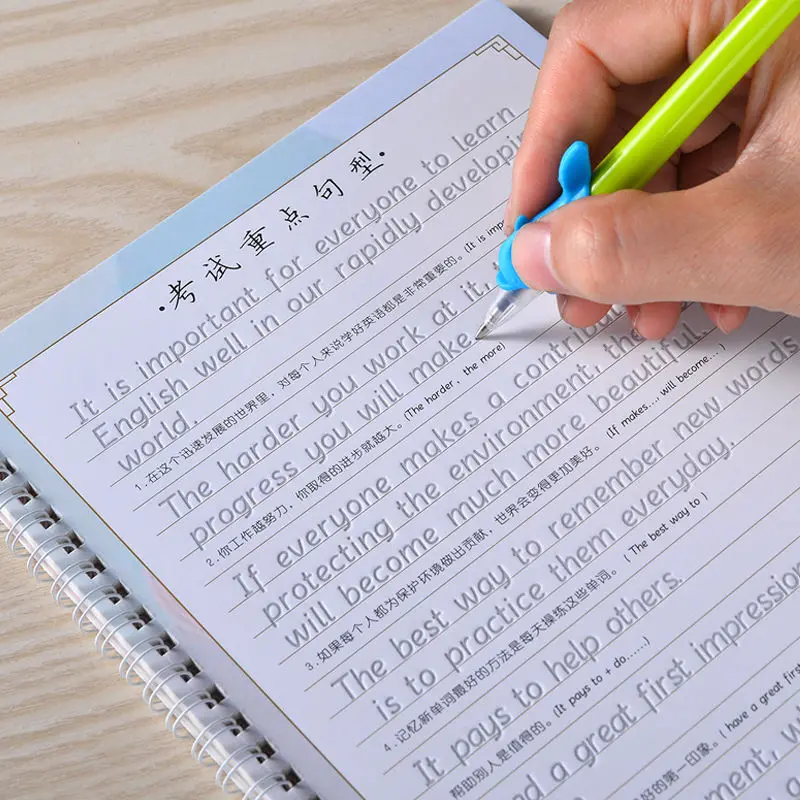 ·考试重点句型·
It is important for everyone to learn
English well in our rapidly developing
world.
1.在这个迅速发展的世界里，对每个人来说学好英语都是非常重要的。(It is impo
The harder you work at it, t
progress you will make.
2.你工作越努力，你取得的进步就越大。(The harder, the more)
If everyone makes a contribut
protecting the environment, the
will become much more beautiful.
3.如果每个人都为保护环境做出贡献，世界会变得更加美好。(If makes..., will become...)
The best way to remember new words
is to practice them everyday.
4.记忆新单词最好的方法是每天操练这些单词。(The best way to)
It pays to help others.
帮助别人是值得的。(It pays to + do......)
nd a great first impression
好的第一印象。(have a great first